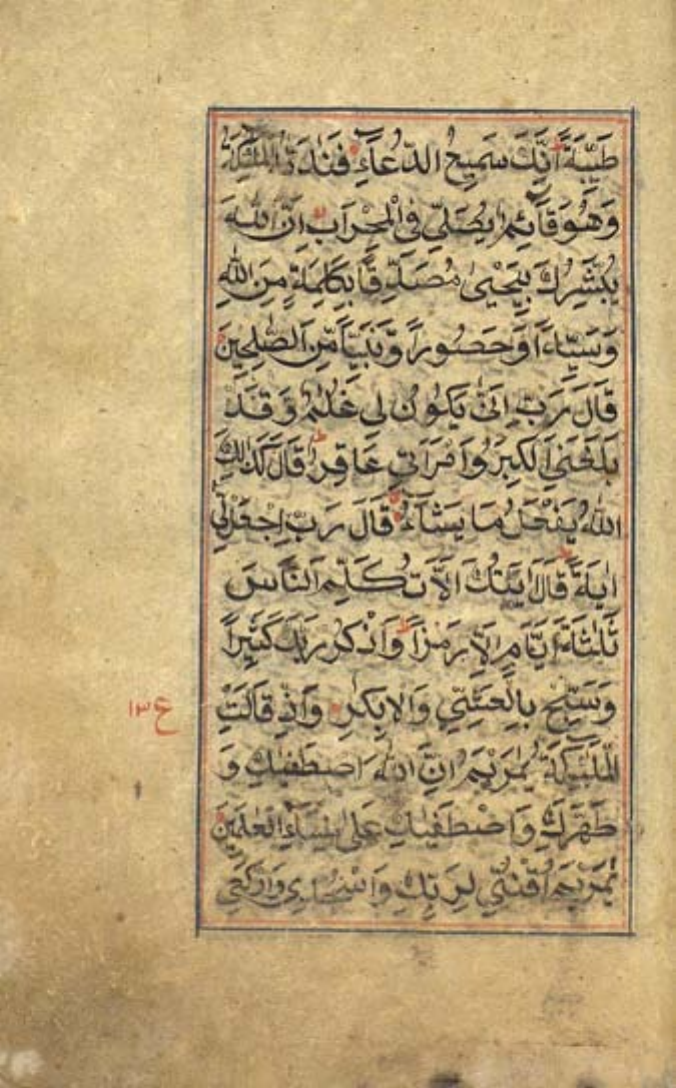 طَيِّبَةً اِنَّكَ سَمِيعُ الدُّعَاءِ فَنَادَتْهُ الْمَلٰئِكَةُ
وَهُوَ قَآئِمٌ يُصَلِّي فِي الْمِحْرَابِ اِنَّ اللهَ
يُبَشِّرُكَ بِيَحْيٰى مُصَدِّقًا بِكَلِمَةٍ مِنَ اللهِ
وَسَيِّدًا وَحَصُورًا وَّنَبِيًّا مِّنَ الصّٰلِحِينَ
قَالَ رَبِّ اَنّٰى يَكُونُ لِي غُلٰمٌ وَقَدْ
بَلَغَنِيَ الْكِبَرُ وَامْرَاَتِي عَاقِرٌ قَالَ كَذٰلِكَ
اللهُ يَفْعَلُ مَا يَشَآءُ قَالَ رَبِّ اجْعَلْ لِي
اٰيَةً قَالَ اٰيَتُكَ اَلَّا تُكَلِّمَ النَّاسَ
ثَلٰثَةَ اَيَّامٍ اِلَّا رَمْزًا وَاذْكُرْ رَبَّكَ كَثِيرًا
وَسَبِّحْ بِالْعَشِيِّ وَالْاِبْكَارِ وَاِذْ قَالَتِ
الْمَلٰئِكَةُ يٰمَرْيَمُ اِنَّ اللهَ اصْطَفٰىكِ وَ
طَهَّرَكِ وَاصْطَفٰىكِ عَلٰى نِسَآءِ الْعٰلَمِينَ
يٰمَرْيَمُ اقْنُتِي لِرَبِّكِ وَاسْجُدِي وَارْكَعِي
ع ١٣